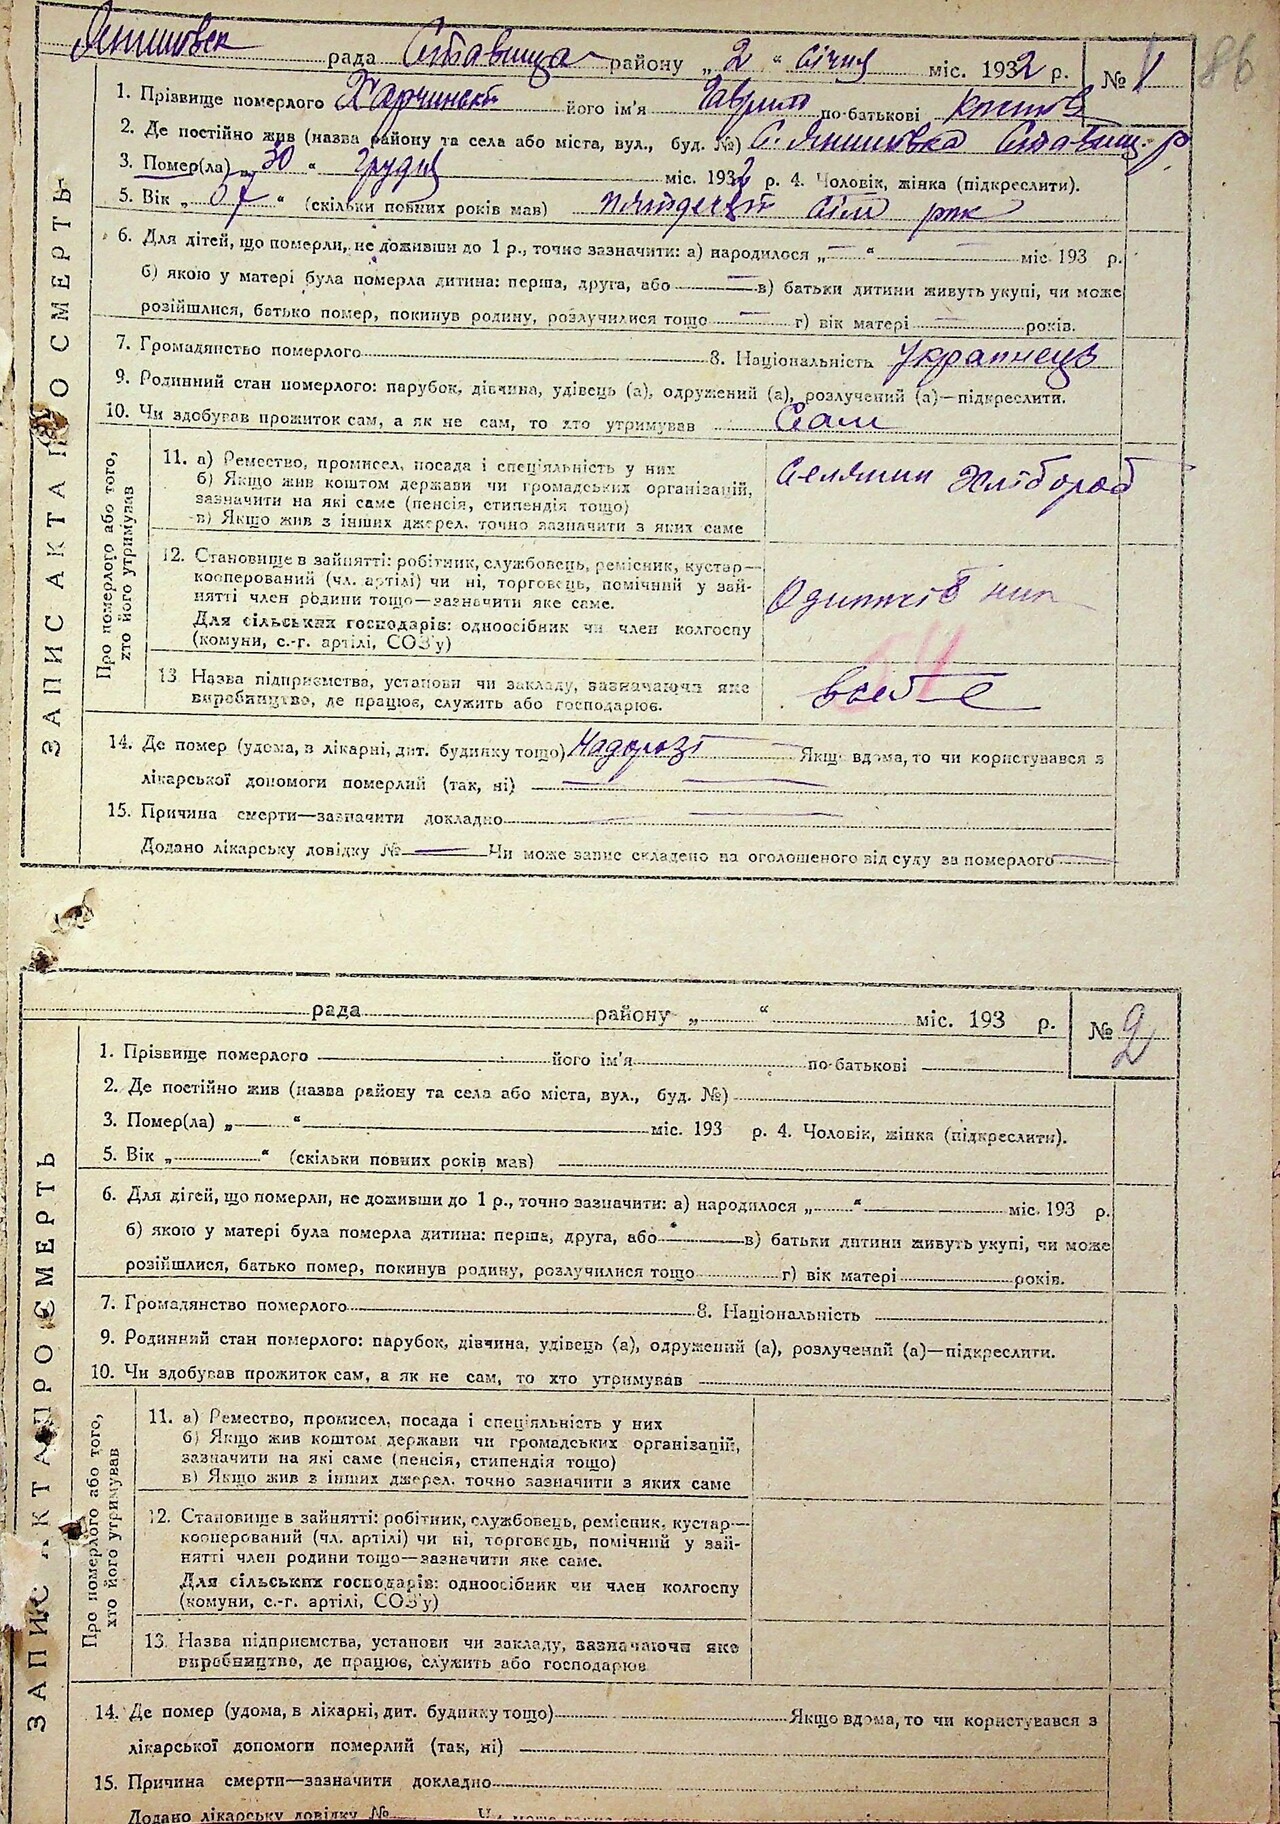 рада Ставища району „ 2 “ січня міс. 1932 р. № 1 86
1. Прізвище померлого його ім'я Гаврило по-батькові
2. Де постійно жив (назва району та села або міста, вул., буд. №) С. Янишовка Ставищ. р
3. Помер(ла) „ 30 “ грудня міс. 1932 р. 4. Чоловік, жінка (підкреслити).
5. Вік „ 57 “ (скільки повних років мав) сім рок
6. Для дітей, що померли, не доживши до 1 р., точно зазначити: а) народилося „ — “ — міс. 193 р.
б) якою у матері була померла дитина: перша, друга, або — в) батьки дитини живуть укупі, чи може
розійшлися, батько помер, покинув родину, розлучилися тощо — г) вік матері — років.
7. Громадянство померлого 8. Національність Українець
9. Родинний стан померлого: парубок, дівчина, удівець (а), одружений (а), розлучений (а)—підкреслити.
10. Чи здобував прожиток сам, а як не сам, то хто утримував Сам
ЗАПИС АКТА ПРО СМЕРТЬ
Про померлого або того, хто його утримував
11. а) Ремество, промисел, посада і спеціяльність у них
б) Якщо жив коштом держави чи громадських організацій,
зазначити на які саме (пенсія, стипендія тощо)
в) Якщо жив з інших джерел, точно зазначити з яких саме
Селянин Хлібороб
12. Становище в зайнятті: робітник, службовець, ремісник, кустар—
кооперований (чл. артілі) чи ні, торговець, помічний у зай-
нятті член родини тощо—зазначити яке саме.
Для сільських господарів: одноосібник чи член колгоспу
(комуни, с.-г. артілі, СОЗ'у)
13. Назва підприємства, установи чи закладу, зазначаючи яке
виробництво, де працює, служить або господарює.
14. Де помер (удома, в лікарні, дит. будинку тощо) Надорозі — Якщо вдома, то чи користувався з
лікарської допомоги померлий (так, ні) — —
15. Причина смерти—зазначити докладно — —
Додано лікарську довідку № — Чи може запис складено на оголошеного від суду за померлого —
рада району „ “ міс. 193 р. № 2
1. Прізвище померлого його ім'я по-батькові
2. Де постійно жив (назва району та села або міста, вул., буд. №)
3. Помер(ла) „ “ міс. 193 р. 4. Чоловік, жінка (підкреслити).
5. Вік „ “ (скільки повних років мав)
6. Для дітей, що померли, не доживши до 1 р., точно зазначити: а) народилося „ “ міс. 193 р.
б) якою у матері була померла дитина: перша, друга, або в) батьки дитини живуть укупі, чи може
розійшлися, батько помер, покинув родину, розлучилися тощо г) вік матері років.
7. Громадянство померлого 8. Національність
9. Родинний стан померлого: парубок, дівчина, удівець (а), одружений (а), розлучений (а)—підкреслити.
10. Чи здобував прожиток сам, а як не сам, то хто утримував
ЗАПИС АКТА ПРО СМЕРТЬ
Про померлого або того, хто його утримував
11. а) Ремество, промисел, посада і спеціяльність у них
б) Якщо жив коштом держави чи громадських організацій,
зазначити на які саме (пенсія, стипендія тощо)
в) Якщо жив з інших джерел, точно зазначити з яких саме
12. Становище в зайнятті: робітник, службовець, ремісник, кустар—
кооперований (чл. артілі) чи ні, торговець, помічний у зай-
нятті член родини тощо—зазначити яке саме.
Для сільських господарів: одноосібник чи член колгоспу
(комуни, с.-г. артілі, СОЗ'у)
13. Назва підприємства, установи чи закладу, зазначаючи яке
виробництво, де працює, служить або господарює
14. Де помер (удома, в лікарні, дит. будинку тощо) Якщо вдома, то чи користувався з
лікарської допомоги померлий (так, ні)
15. Причина смерти—зазначити докладно
Додано лікарську довідку №